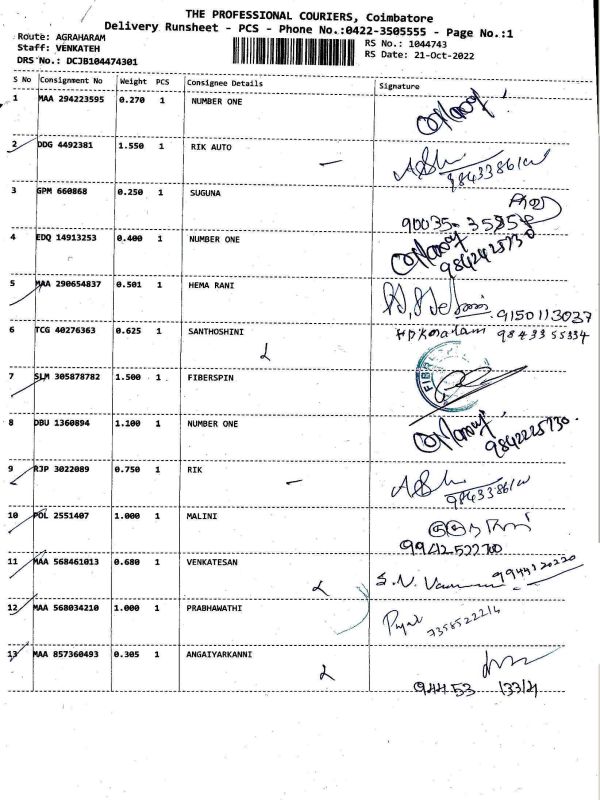 THE PROFESSIONAL COURIERS, Coimbatore
Delivery Runsheet - PCS - Phone No.:0422-3505555 - Page No.:1
Route: AGRAHARAM
Staff: VENKATEH
DRS No.: DCJB104474301
RS No.: 1044743
RS Date: 21-Oct-2022
S No Consignment No Weight PCS Consignee Details Signature
1 MAA 294223595 0.270 1 NUMBER ONE
2 DDG 4492381 1.550 1 RIK AUTO
3 GPM 660868 0.250 1 SUGUNA
4 EDQ 14913253 0.400 1 NUMBER ONE
5 MAA 290654837 0.501 1 HEMA RANI
9150113037
6 TCG 40276363 0.625 1 SANTHOSHINI
9843355334
7 SLM 305878782 1.500 1 FIBERSPIN
8 DBU 1360894 1.100 1 NUMBER ONE
9842225730
9 RJP 3022089 0.750 1 RIK
10 POL 2551407 1.000 1 MALINI
9942522700
11 MAA 568461013 0.680 1 VENKATESAN
12 MAA 568034210 1.000 1 PRABHAWATHI
7358522214
13 MAA 857360493 0.305 1 ANGAIYARKANNI